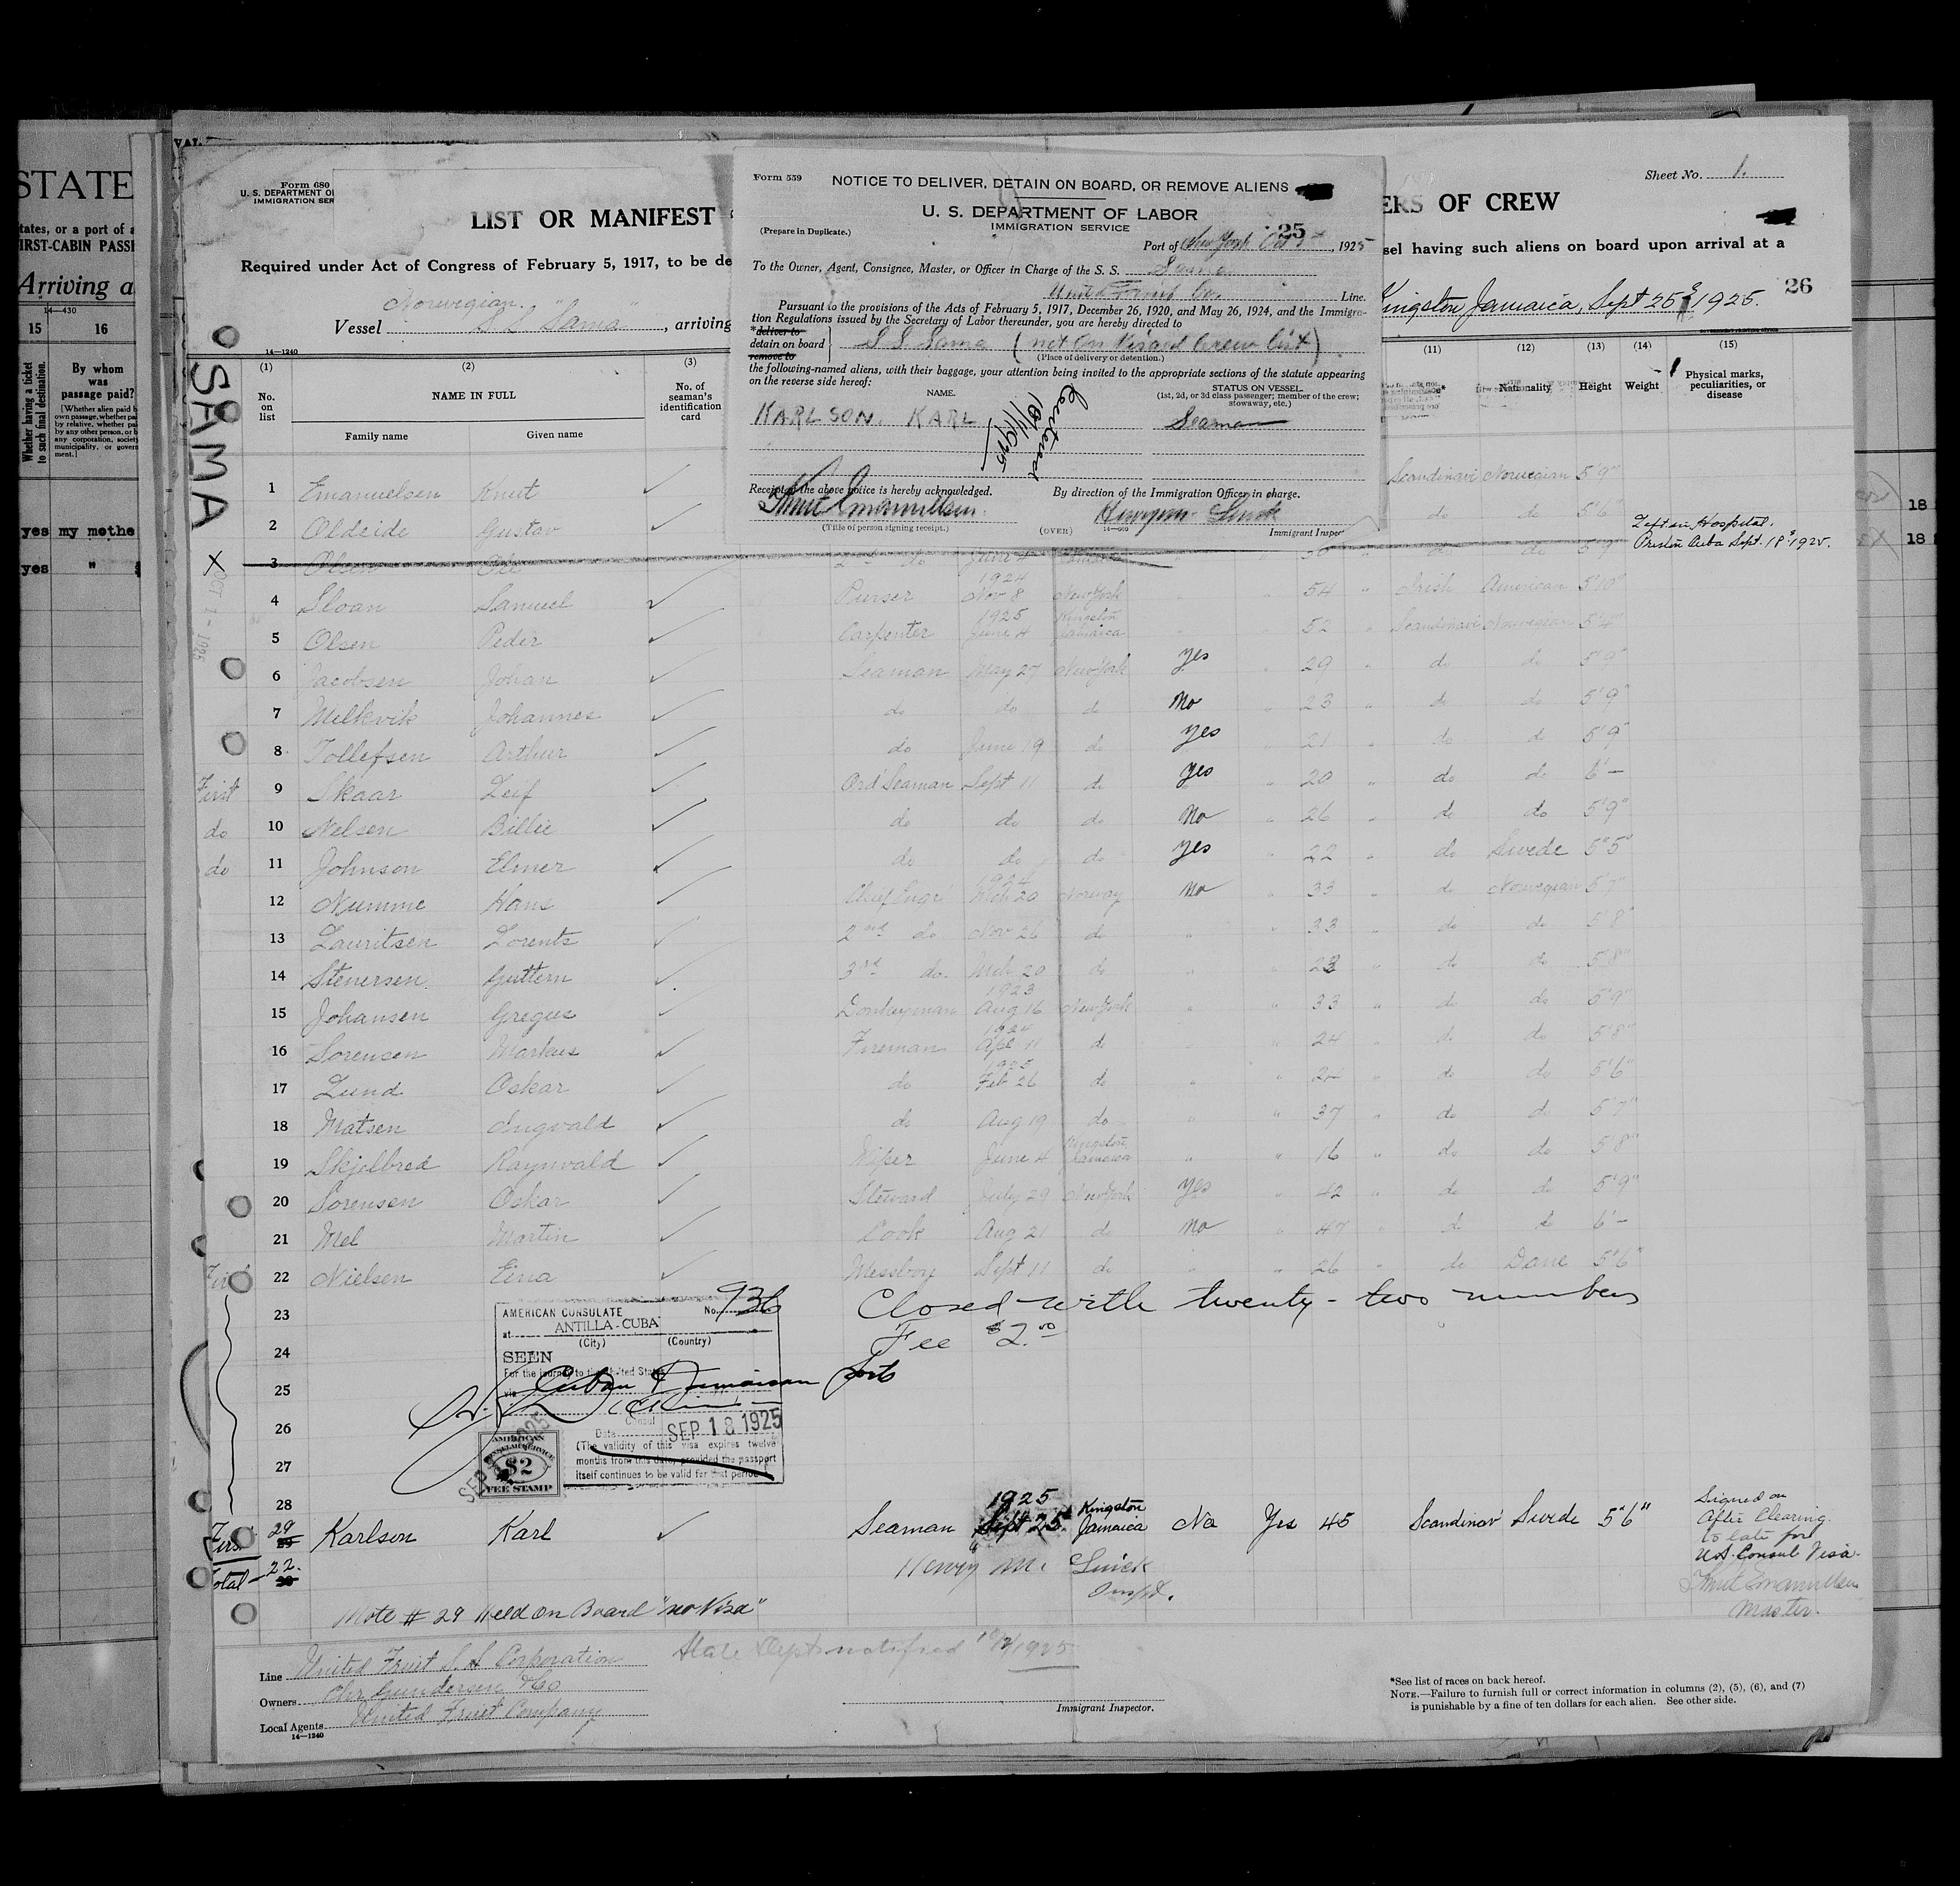 STATE
tates, or a port of a
IRST-CABIN PASSI
Arriving a
14-430
15 16
Whether having a ticket to such final destination.
By whom was passage paid?
yes my mothe
yes "
VAL
Form 680
U. S. DEPARTMENT OF
IMMIGRATION SER
LIST OR MANIFEST
ERS OF CREW
Sheet No. 1.
Required under Act of Congress of February 5, 1917, to be de
sel having such aliens on board upon arrival at a
Norwegian
Vessel S S "Sama", arriving
Kingston Jamaica, Sept 25 1925.
26
14-1240
SAMA
Form 559
NOTICE TO DELIVER, DETAIN ON BOARD, OR REMOVE ALIENS
U. S. DEPARTMENT OF LABOR
IMMIGRATION SERVICE
25
(Prepare in Duplicate.)
Port of New York Oct 1st, 1925
To the Owner, Agent, Consignee, Master, or Officer in Charge of the S. S. Sama
United Fruit Co. Line.
Pursuant to the provisions of the Acts of February 5, 1917, December 26, 1920, and May 26, 1924, and the Immigra-
tion Regulations issued by the Secretary of Labor thereunder, you are hereby directed to
*deliver to
detain on board S S Sama (not on Visaed Crew list)
remove to
(Place of delivery or detention.)
the following-named aliens, with their baggage, your attention being invited to the appropriate sections of the statute appearing
on the reverse side hereof:
NAME. STATUS ON VESSEL.
(1st, 2d, or 3d class passenger; member of the crew; stowaway, etc.)
KARLSON. KARL Seaman
Receipt of the above notice is hereby acknowledged. By direction of the Immigration Officer in charge.
Knut Emanuelsen
(Title of person signing receipt.) (OVER) Immigrant Inspec
(1) (2) (3) (11) (12) (13) (14) (15)
No. on list NAME IN FULL No. of seaman's identification card Nationality Height Weight Physical marks, peculiarities, or disease
Family name Given name
1 Emanuelsen Knut Scandinavi Norwegian 5'9"
2 Oldeide Gustav do do 5'6"
Left in Hospital.
Preston Cuba Sept. 18 1925.
X 3 Olsen Ole 2nd do June 4 Jamaica do do 5'9
4 Sloan Samuel Purser 1924 Nov 8 New York " " 54 " Irish American 5'10"
5 Olsen Peder Carpenter 1925 June 4 Kingston Jamaica " " 52 " Scandinavi Norwegian 5'4"
6 Jacobsen Johan Seaman May 27 New York Yes " 29 " do do 5'9"
7 Melkvik Johannes do do do No " 23 " do do 5'9"
8 Tollefsen Arthur do June 19 do Yes " 21 " do do 5'9"
First 9 Skaar Leif Ord Seaman Sept 11 do Yes " 20 " do do 6'—
do 10 Nelsen Billie do do do No " 26 " do do 5'9"
do 11 Johnson Elmer do do do Yes " 22 " do Swede 5'5"
12 Numme Hans Chief Engr 1924 Mch 20 Norway No " 33 " do Norwegian 5'7"
13 Lauritsen Lorents 2nd do Nov 26 do " " 33 " do do 5'8"
14 Stenersen Guttern 3rd do. Mch 20 do " " 23 " do do 5'8"
15 Johansen Gregus Donkeyman 1923 Aug 16 New York " " 33 " do do 5'9"
16 Sorensen Markus Fireman 1924 Apl 11 do " " 24 " do do 5'8"
17 Lund Oskar do 1925 Feb 26 do " " " do do 5'6"
18 Matsen Ingvald do Aug 19 do " " 37 " do do 5'7"
19 Skjelbred Raynvald Wiper June 4 Kingston Jamaica " " 16 " do do 5'8"
20 Sorensen Oskar Steward July 29 New York Yes " 42 " do do 5'9"
21 Mel Martin Cook Aug 21 do No " 47 " do do 6'—
First 22 Nielsen Eina Messboy Sept 11 do " " 26 " do Dane 5'6"
23 Closed with twenty-two numbers
24 Fee $2.00
25
26
27
28
AMERICAN CONSULATE No. 936
at ANTILLA-CUBA
(City) (Country)
SEEN
For the journey to the United States
via Cuban Jamaican Ports
Consul
Date SEP 18 1925
(The validity of this visa expires twelve
months from this date, provided the passport
itself continues to be valid for that period.)
AMERICAN
CONSULAR SERVICE
$2
FEE STAMP
First 29 Karlson Karl Seaman 1925 Sept 25 Kingston Jamaica No Yes 45 Scandinav Swede 5'6"
Signed on
After Clearing.
to late for
U.S. Consul Visa.
Knut Emanuelsen
Master.
Total — 22.
Insptr.
Note # 29 Held on Board "no Visa"
State Dept notified 10/2/1925
Line United Fruit S. S Corporation
Owners Chr Gundersen & Co
Local Agents United Fruit Company
14-1240
Immigrant Inspector.
*See list of races on back hereof.
NOTE.—Failure to furnish full or correct information in columns (2), (5), (6), and (7)
is punishable by a fine of ten dollars for each alien. See other side.